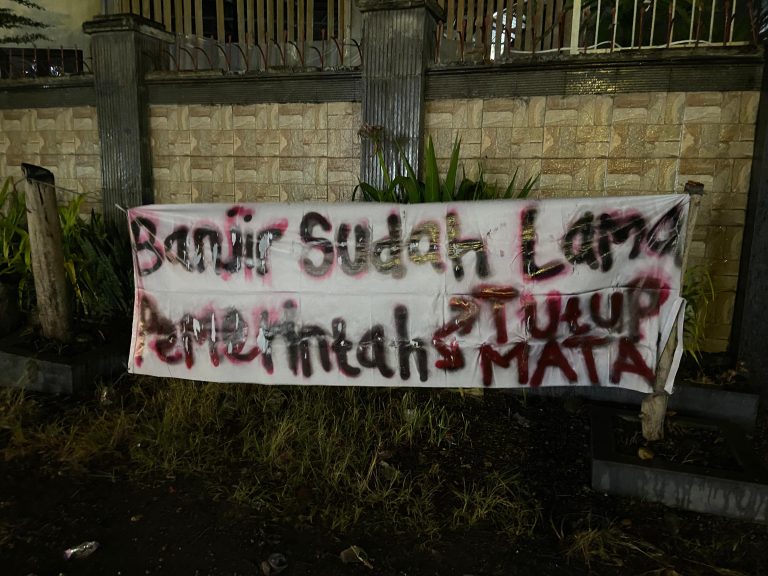 Banjir Sudah Lama
Pemerintah TUtUP
MATA